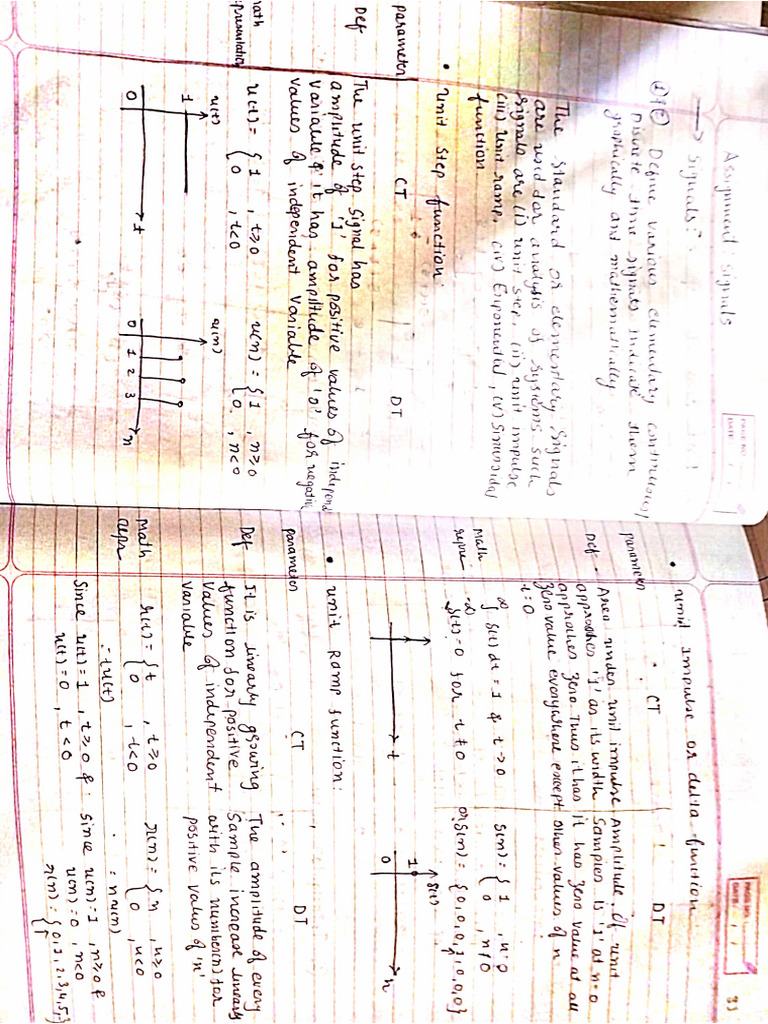 Assignment : signals
PAGE NO.
DATE: / /
→ Signals:
Define various elementary continuous/
Discrete time signals indicate them
graphically and mathematically
The standard or elementary signals
are used for analysis of systems such
signals are (i) unit step, (ii) unit impulse
(iii) unit ramp, (iv) Exponential, (v) Sinusoidal
function.
• Unit step function:
parameter CT DT
Def The unit step signal has
amplitude of '1' for positive values of independ
variable & it has amplitude of '0' for negativ
values of independent variable
math
presentation
u(t) = { 1 , t≥0
0 , t<0
u(n) = { 1 , n≥0
0 , n<0
u(t)
1
0
t
u(n)
0 1 2 3
n
PAGE NO.
DATE: / /
• unit impulse or delta function
parameter CT DT
Def - Area under unit impulse Amplitude of unit
approaches '1' as its width samples is '1' at n=0
approaches zero. Thus it has it has zero value at all
zero value everywhere except other values of n
t=0
Math
repre-
∞
∫ δ(t) dt = 1 & t→0
-∞
δ(t) = 0 for t ≠ 0
δ(n) = { 1 , n=0
0 , n≠0
or δ(n) = {0,0,0,1,0,0,0}
t
δ(t)
1
0
n
• unit Ramp function:
parameter CT DT
Def It is linearly growing The amplitude of every
function for positive Sample increase linearly
values of independent with its number(n) for
variable positive values of 'n'
math
repr
r(t) = { t , t≥0
0 , t<0
r(n) = { n , n≥0
0 , n<0
= tu(t) = n u(n)
Since u(t) = 1 , t≥0 & Since u(n)=1 , n≥0 &
u(t) = 0 , t<0 u(n) = 0 , n<0
r(n) = {0,1,2,3,4,5,}
↑